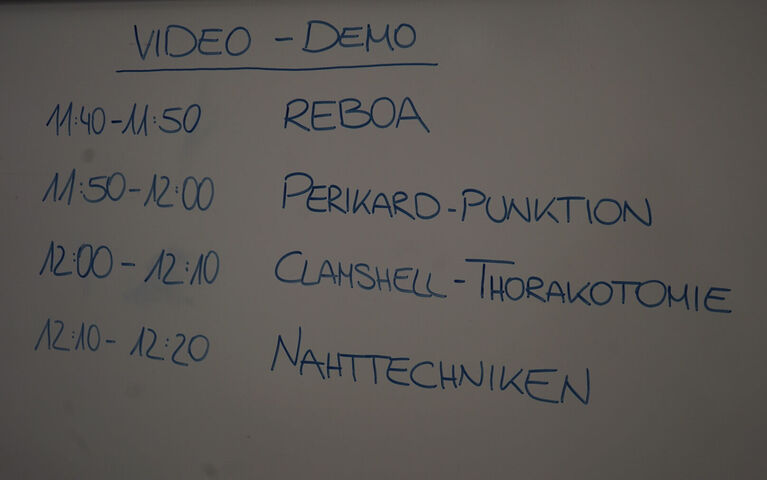 VIDEO - DEMO
11:40-11:50 REBOA
11:50-12:00 PERIKARD-PUNKTION
12:00 - 12:10 CLAMSHELL-THORAKOTOMIE
12:10- 12:20 NAHTTECHNIKEN